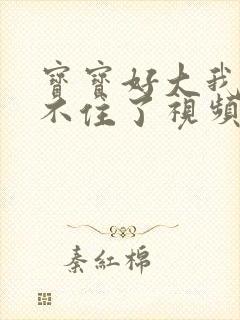 寶寶好大我
不住了視頻
秦紅棉